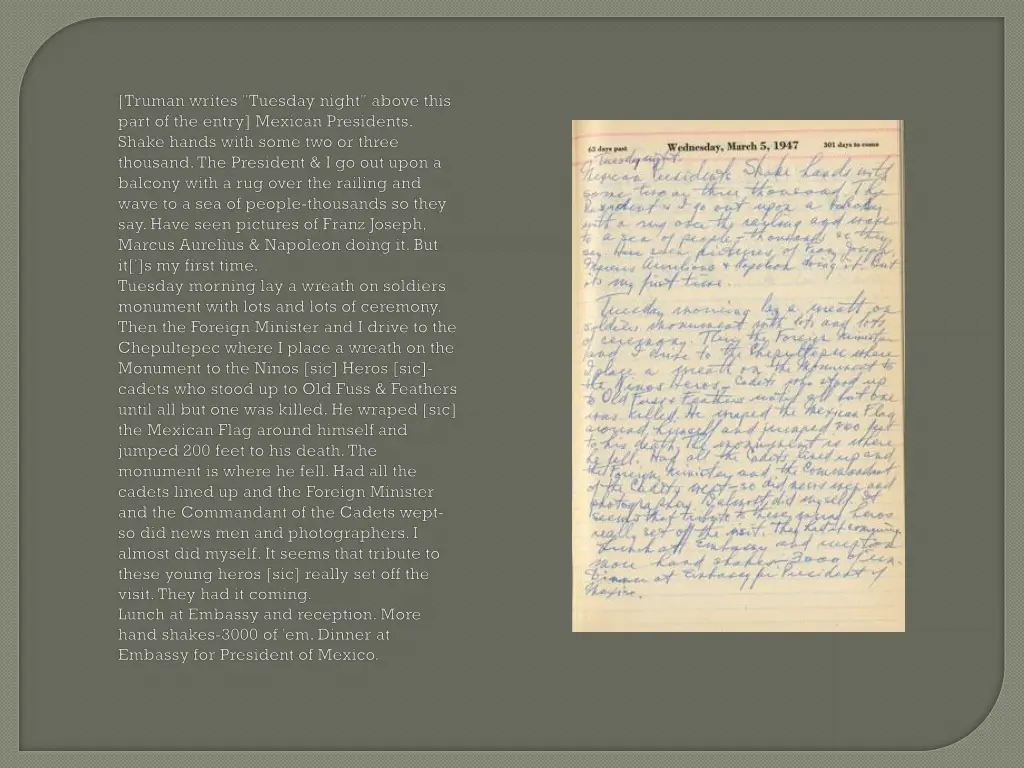 [Truman writes "Tuesday night" above this
part of the entry] Mexican Presidents.
Shake hands with some two or three
thousand. The President & I go out upon a
balcony with a rug over the railing and
wave to a sea of people-thousands so they
say. Have seen pictures of Franz Joseph,
Marcus Aurelius & Napoleon doing it. But
it[']s my first time.
Tuesday morning lay a wreath on soldiers
monument with lots and lots of ceremony.
Then the Foreign Minister and I drive to the
Chepultepec where I place a wreath on the
Monument to the Ninos [sic] Heros [sic]-
cadets who stood up to Old Fuss & Feathers
until all but one was killed. He wraped [sic]
the Mexican Flag around himself and
jumped 200 feet to his death. The
monument is where he fell. Had all the
cadets lined up and the Foreign Minister
and the Commandant of the Cadets wept-
so did news men and photographers. I
almost did myself. It seems that tribute to
these young heros [sic] really set off the
visit. They had it coming.
Lunch at Embassy and reception. More
hand shakes-3000 of 'em. Dinner at
Embassy for President of Mexico.
63 days past Wednesday, March 5, 1947 301 days to come
Tuesday night.
Mexican Presidents Shake hands with
some two or three thousand The
President & I go out upon a balcony
with a rug over the railing and wave
to a sea of people-thousands so they
say. Have seen pictures of Franz Joseph,
Marcus Aurelius & Napoleon doing it. But
its my first time.
Tuesday morning lay a wreath on
soldiers monument with lots and lots
of ceremony. Then the Foreign Minister
and I drive to the Chepultepec where
I place a wreath on the Monument to
the Ninos Heros-cadets who stood up
to Old Fuss & Feathers until all but one
was killed. He wraped the Mexican Flag
around himself and jumped 200 feet
to his death. The monument is where
he fell. Had all the Cadets lined up and
the Foreign Minister and the Commandant
of the Cadets wept-so did news men and
photographers. I almost did myself. It
seems that tribute to these young heros
really set off the visit. They had it coming.
Lunch at Embassy and reception
more hand shakes-3000 of 'em.
Dinner at Embassy for President of
Mexico.